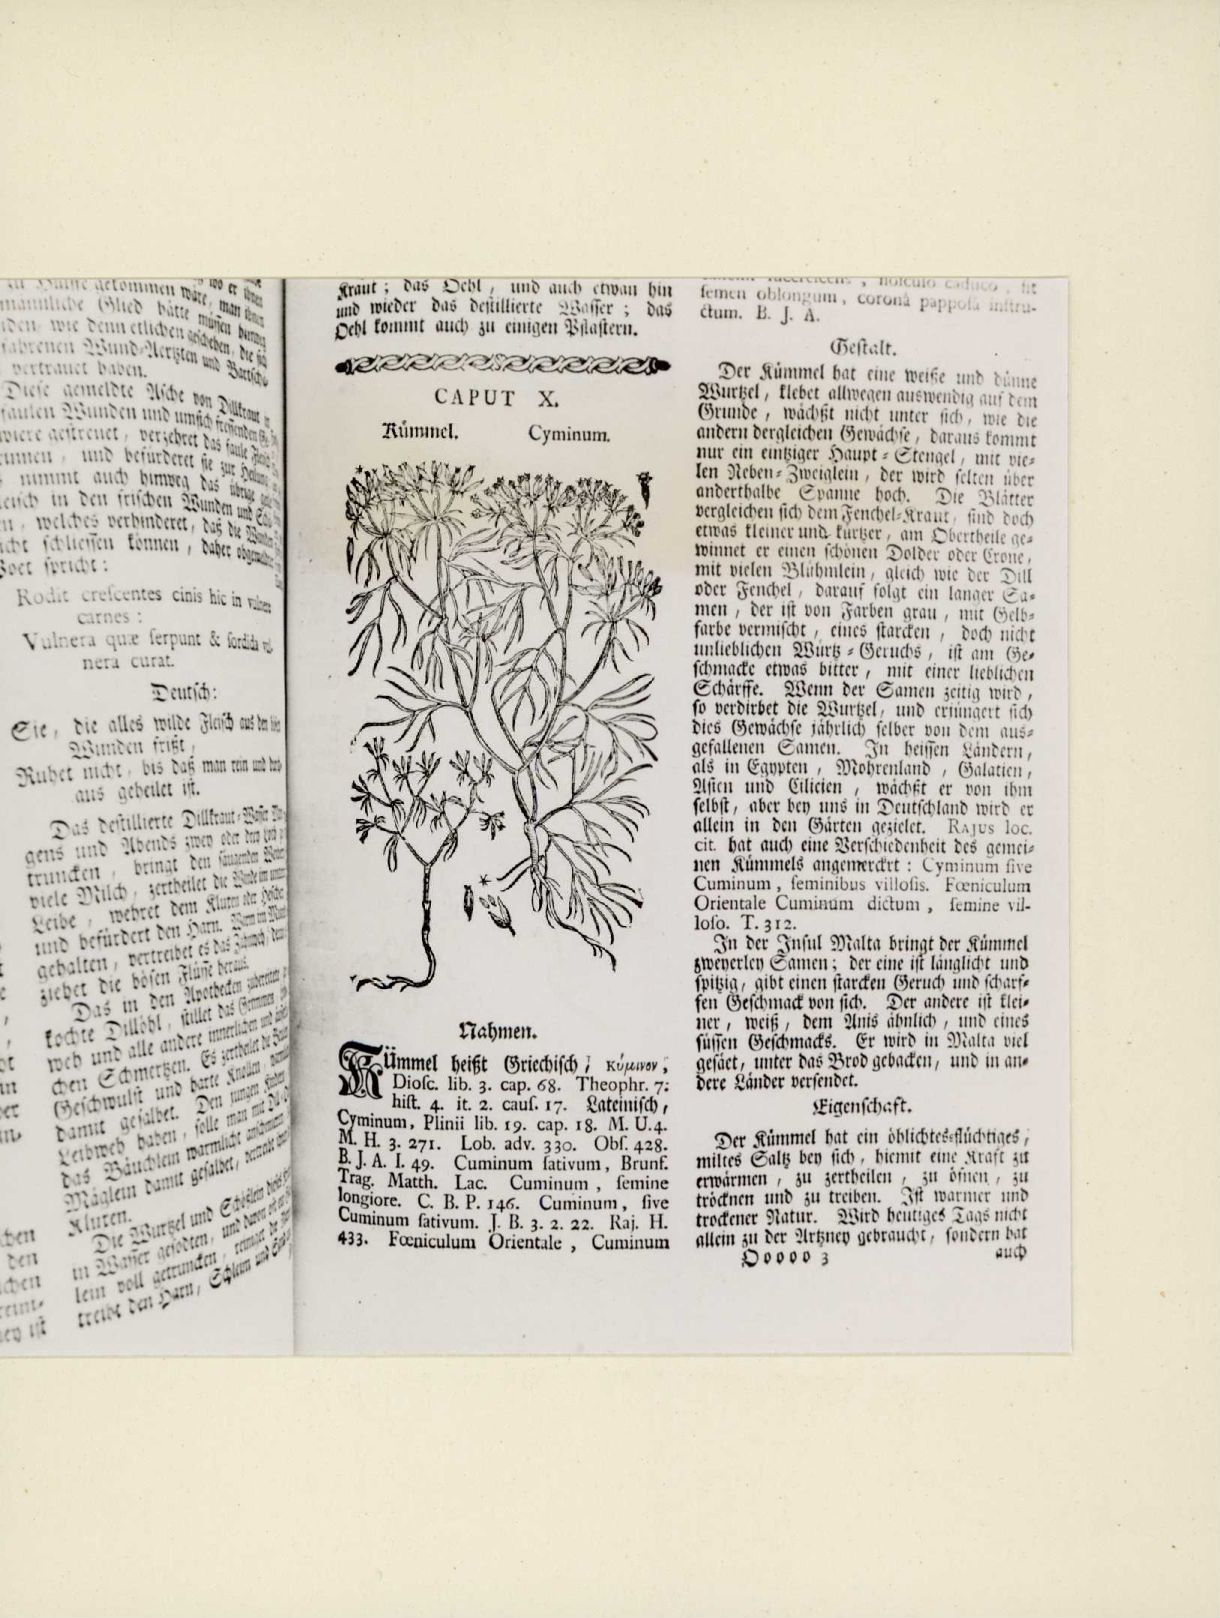 männliche Glied hätte müssen
vertrauet haben.
Diese gemeldte Asche von Dillkraut in
faulen Wunden und umsich fressenden
gestreuet, verzehret das faule Fleisch
und befürderet sie zur Heilung
nimmt auch hinweg das übrige
in den frischen Wunden und
welches verhinderet, daß die Wunden
schliessen können, daher obgemeldter
Poet spricht:
Rodit crescentes cinis hic in vulnere
carnes:
Vulnera quæ serpunt & sordida vul-
nera curat.
Deutsch:
Sie, die alles wilde Fleisch aus den
Wunden frißt,
Ruhet nicht, bis daß man rein und
aus geheilet ist.
Das destillierte Dillkraut-Wasser
gens und Abends zwey oder drey
truncken, bringt den säugenden
viele Milch, zertheilet die Winde im
Leibe, wehret dem Kluren oder
und befürdert den Harn. Warm im Mund
gehalten, vertreibet es das Zahnweh,
ziehet die bösen Flüsse heraus.
Das in den Apothecken
kochte Dillöhl, stillet das Grimmen
weh und alle andere innerlichen und
chen Schmertzen. Es zertheilet die
Geschwulst und harte Knollen,
damit gesalbet. Den jungen
Leibweh haben, solle man mit
das Bäuchlein wärmlicht
Mäglein damit gesalbet,
Kluren.
Die Wurtzel und Schößlein
in Wasser gesotten, und davon
lein voll getruncken, reiniget die
treibt den Harn, Schleim und
Kraut; das Oehl, und auch etwan hin
und wieder das destillierte Wasser; das
Oehl kommt auch zu einigen Pflastern.
CAPUT X.
Kümmel. Cyminum.
Nahmen.
Kümmel heißt Griechisch, κύμινον,
Diosc. lib. 3. cap. 68. Theophr. 7.
hist. 4. it. 2. caus. 17. Lateinisch,
Cyminum, Plinii lib. 19. cap. 18. M. U. 4.
M. H. 3. 271. Lob. adv. 330. Obs. 428.
B. J. A. I. 49. Cuminum sativum, Brunf.
Trag. Matth. Lac. Cuminum, semine
longiore. C. B. P. 146. Cuminum, sive
Cuminum sativum. J. B. 3. 2. 22. Raj. H.
433. Fœniculum Orientale, Cuminum
semen oblongum, coronâ papposâ instru-
ctum. B. J. A.
Gestalt.
Der Kümmel hat eine weiße und dünne
Wurtzel, klebet allwegen auswendig auf dem
Grunde, wächßt nicht unter sich, wie die
andern dergleichen Gewächse, daraus kommt
nur ein eintziger Haupt-Stengel, mit vie-
len Neben-Zweiglein, der wird selten über
anderthalbe Spanne hoch. Die Blätter
vergleichen sich dem Fenchel-Kraut, sind doch
etwas kleiner und kürtzer, am Obertheile ge-
winnet er einen schönen Dolder oder Crone,
mit vielen Blühmlein, gleich wie der Dill
oder Fenchel, darauf folgt ein langer Sa-
men, der ist von Farben grau, mit Gelb-
farbe vermischt, eines starcken, doch nicht
unlieblichen Würtz-Geruchs, ist am Ge-
schmacke etwas bitter, mit einer lieblichen
Schärffe. Wenn der Samen zeitig wird,
so verdirbet die Wurtzel, und erjüngert sich
dies Gewächse jährlich selber von dem aus-
gefallenen Samen. In heissen Ländern,
als in Egypten, Mohrenland, Galatien,
Asien und Cilicien, wächßt er von ihm
selbst, aber bey uns in Deutschland wird er
allein in den Gärten gezielet. RAJUS loc.
cit. hat auch eine Verschiedenheit des gemei-
nen Kümmels angemerckt: Cyminum sive
Cuminum, seminibus villosis. Fœniculum
Orientale Cuminum dictum, semine vil-
loso. T. 312.
In der Insul Malta bringt der Kümmel
zweyerley Samen; der eine ist länglicht und
spitzig, gibt einen starcken Geruch und scharf-
fen Geschmack von sich. Der andere ist klei-
ner, weiß, dem Anis ähnlich, und eines
süssen Geschmacks. Er wird in Malta viel
gesäet, unter das Brod gebacken, und in an-
dere Länder versendet.
Eigenschaft.
Der Kümmel hat ein öhlichtes-flüchtiges,
miltes Saltz bey sich, hiemit eine Kraft zu
erwärmen, zu zertheilen, zu öfnen, zu
tröcknen und zu treiben. Ist warmer und
trockener Natur. Wird heutiges Tags nicht
allein zu der Artzney gebraucht, sondern hat
Ooooo 3 auch